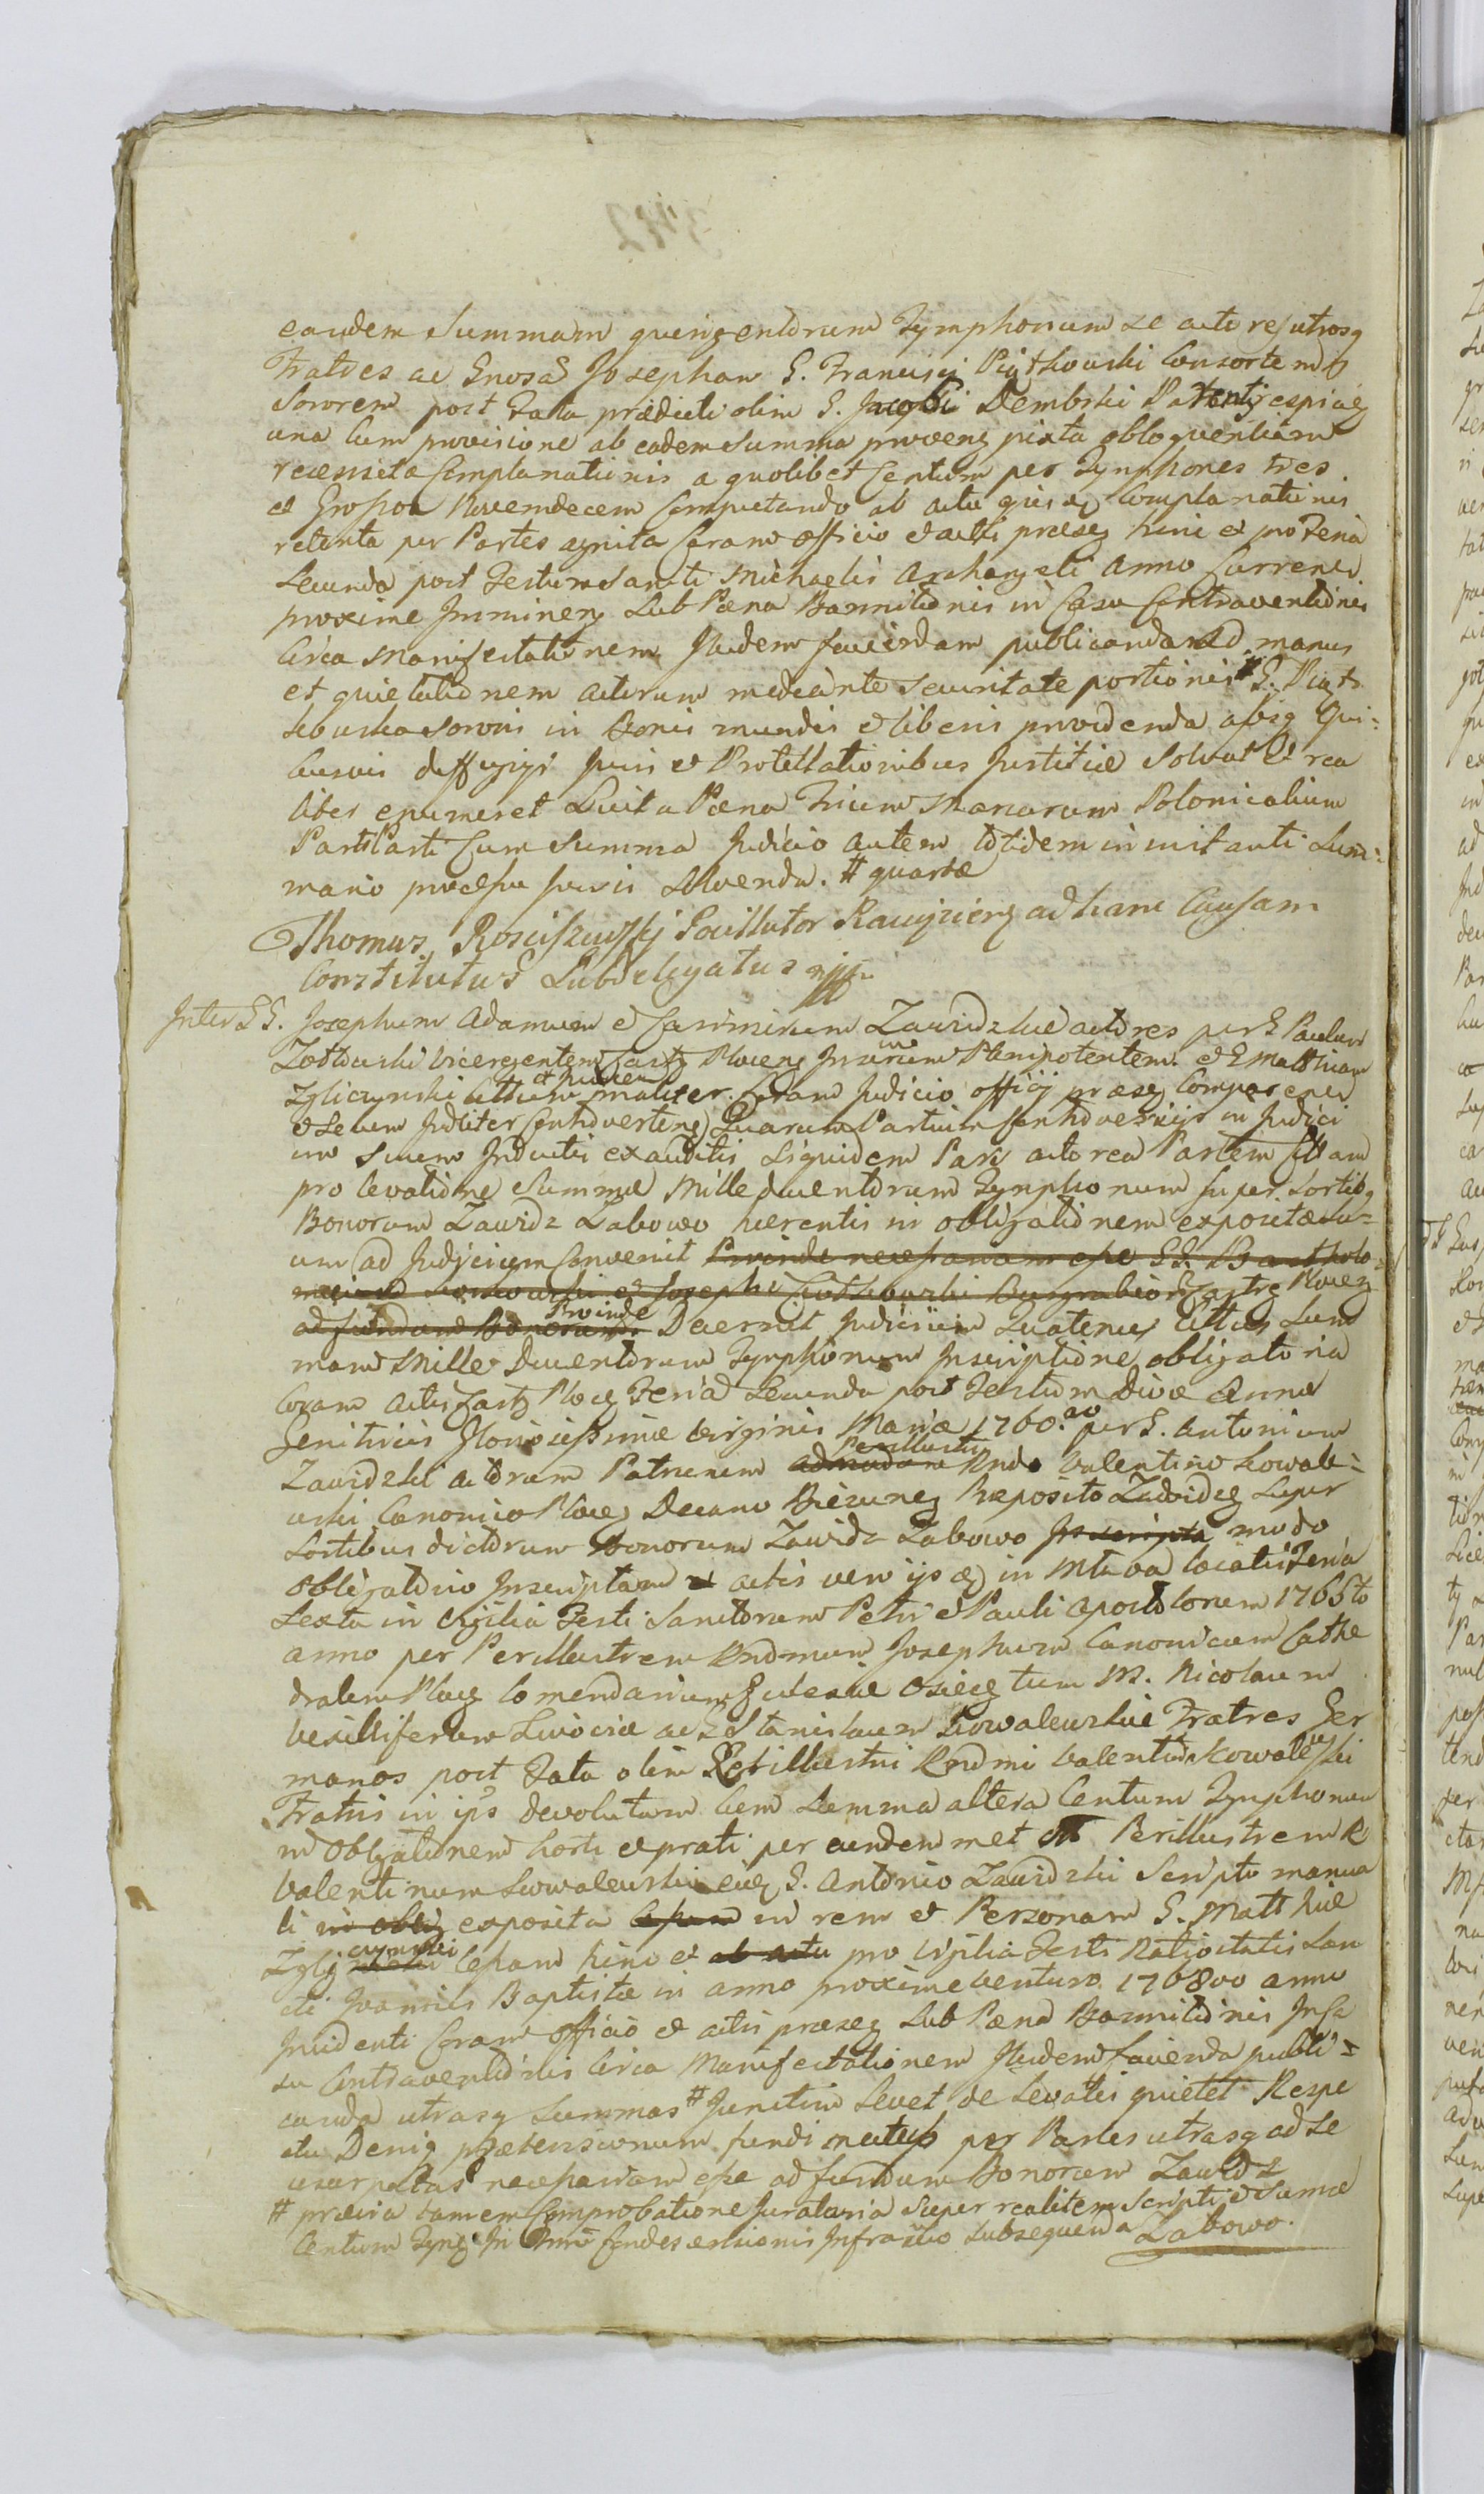 eandem Summam quingentorum Tymphonum se actores utrosq
Fratres ac Gnosã Josepham G. Francisci Piątkowski Consortem
Sororem post Fata prædicti olim G. Jacobi Dembski Patenti respicieg
una cum provisione ab eadem Summa proveng juxta obloquentiam
recensita Complanationis a quolibet Centum per Tymphones tres
et Grossos Novemdecem Computando ab actu ejusq Complanationis
retenta per Partes agnita Coram officio et actis præseg hinc et pro Feria
Secunda post Festum Sancti Michaelis Archangeli Anno Curren
proxime Imminen Sub Pæna Bannitionis in Casu Contraventionis
Circa Manifestationem Ibidem faciendam publicanda ad manus
et quietationem actorum mediante Securitate portionis # G. Piąt
kowska Sororis in Bonis mundis et liberis providenda absq Qui=
busvis diffugijs Juris et Protestationibus Justitiæ Solvat et rea
liter enumeret Luita Pæna Trium Marcarum Polonicalium
Parti Parti Cum Summa Judicio autem totidem in instanti Sum=
mario processu Juris Solvenda. # quartæ
Thomas Rosciszewskj Scultutor Rawjzieng ad hanc Causam
Constitutus Subdelegatus mpp
Inter GG. Josephum Adamum et Casimirum Zawidzkie actores per G Paulum
Zołtowski vicegerentem Castr Plocen Juratum Plenipotentem et G Matthiam
Zgliczynski Citum et Juneu maliter. Coram Judicio officij præseg Comparen
et Secum Juditer Controverteng Quarum Partium Controversijs in Judici
um Suum Inductis exauditis Siquidem Pars actorea Partem Cittam
pro levatione Summæ Mille ducentorum Tymphonum super Sortib
Bonorum Zawidz Zabowo hærentis in obligationem expositæ su=
um ad Judicium Convenit Proinde necessariam esse GG. Bartholo=
mei et Josephi Burgrabior Castre Plocen
ad fundum Bonorum. Proinde Decernit Judicium Quatenus Cittus Sum
mam Mille Ducentorum Tymphonum Inscriptione obligatoria
Coram actis Castr Ploceg Feria Secunda post Festum Divæ Annæ
Genitricis Gloriosissimæ Virginis Mariæ 1760. ao per G. Antonium
Zawidzki actorum Patruum admodum Perillustri Rndo Valentino Kowale=
wski Canonico Ploceg Decano Bieżuneg Præposito Zawidzeg super
Sortibus dictorum Bonorum Zawidz Zabowo Inscripta modo
Obligatorio Inscriptam et actis vero ijsdeq in Mława locatis Feria
Sexta in Vigilia Festi Sanctorum Petri et Pauli Apostolorum 1766to
anno per Perillustrem Rndmum Josephum Canonicum Cathe
dralem Ploceg Comendarium Ecclesiæ Osieceg tum M. Nicolaum
vexilliferum Livociæ ac G Stanislaum Kowalewskie Fratres Ger
manos post Fata olim Perillustri Rndmi Valentini Kowalewski
Fratris in ips devolutam Cum Summa altera Centum Tymphonum
in Obligationem horti et prati per eundem met Perillustrem R
Valentinum Kowalewski eidq G. Antonio Zawidzki Scripto manua
li in oblig exposita Cessam in rem et Personam G. Matthiæ
Zgliczynski Cessam hinc et ab actu pro Vigilia Festi Nativitatis San
cti Joannis Baptistæ in anno proxime venturo 1768vo anno
Incidenti Coram officio et actis præseg Sub Pæna Bannitionis In Ca
su Contraventionis Circa Manifestationem Ibidem facienda publi=
canda utrasq Summas # Junctim Levet de Levatis quietet Respe
ctu Deniq prætensionum fundi per Partes utrasq ad Se
usurpatas necessariam esse ad fundum Bonorum Zawidz
# prævia tamen Comprobatione Juratoria Super realitem Scripti et Sumæ
Centum Tynf In condescensionis Infra scto Subsequenda Zabowo.